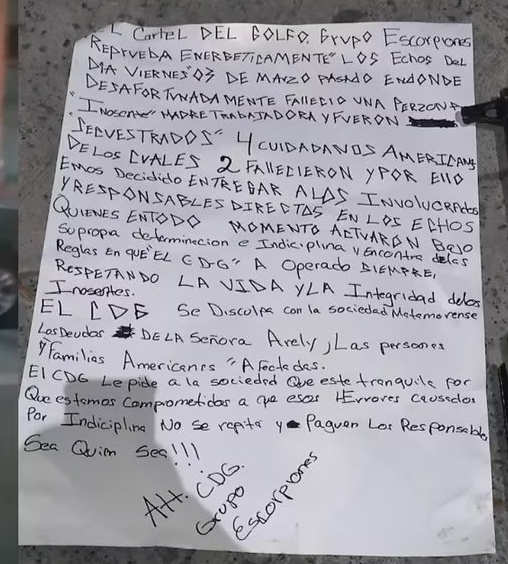 EL Cartel DEL GOLFO. Grupo Escorpiones
REPRUEBA ENERGETICAMENTE" LOS Echos Del
DIA VIERNES" 03 DE MARZO PASADO ENDONDE
DESAFORTUNADAMENTE FALLECIO UNA PERZONA
"INOSENTE" MADRE TRABAJADORA Y FUERON
SECUESTRADOS" 4 CUIDADANOS AMERICANS
DE LOS CUALES 2 FALLECIERON Y POR ELLO
EMOS Decidido ENTREGAR A LOS INVOLUCRADOS
Y RESPONSABLES DIRECTOS EN LOS ECHOS
QUIENES ENTODO MOMENTO ACTUARON BAJO
Su propa determinacion e Indiciplina y Encontra delas
Reglas En QUE EL CDG" A Operado SIEMPRE,
RESPETANDO LA VIDA Y LA Integridad delos
Inosentes.
EL CDG Se Disculpa con la sociedad Matamorense
Los Deudos DE LA Señora Arely, Las personas
y Familias Americanas "Afectadas.
El CDG Le pide a la sociedad Que este tranquila por
Que estamos Comprometidos a que esos Errores Causados
Por Indiciplina No se repita y Paguen Los Responsables
Sea Quien Sea!!!
Att. CDG.
Grupo
Escorpiones